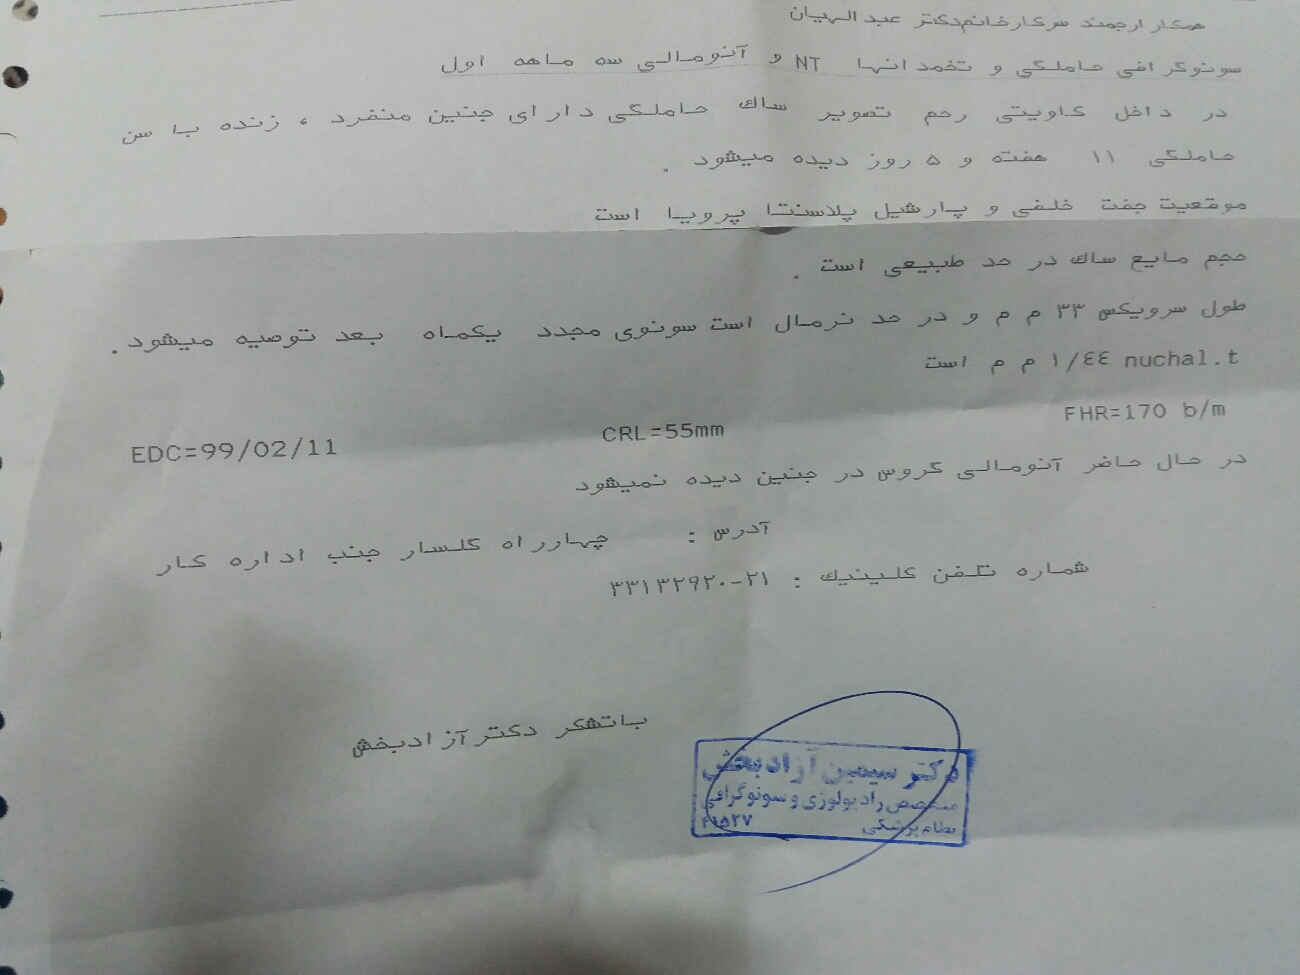 همکار ارجمند سرکارخانم دکتر عبدالهیان
سونوگرافی حاملگی و تخمدانها NT و آنومالی سه ماهه اول
در داخل کاویتی رحم تصویر ساک حاملگی دارای جنین منفرد ، زنده با سن
حاملگی ۱۱ هفته و ۵ روز دیده میشود .
موقعیت جفت خلفی و پارشیل پلاسنتا پرویا است
حجم مایع ساک در حد طبیعی است .
طول سرویکس ۳۳ م م و در حد نرمال است سونوی مجدد یکماه بعد توصیه میشود .
nuchal.t ۱/٤٤ م م است
FHR=170 b/m CRL=55mm EDC=99/02/11
در حال حاضر آنومالی گروس در جنین دیده نمیشود
آدرس : چهارراه گلسار جنب اداره کار
شماره تلفن کلینیک : ۲۱-۳۳۱۳۲۹۲۰
باتشکر دکتر آزادبخش
دکتر سیمین آزادبخش
متخصص رادیولوژی و سونوگرافی
نظام پزشکی ۲۱۵۲۷